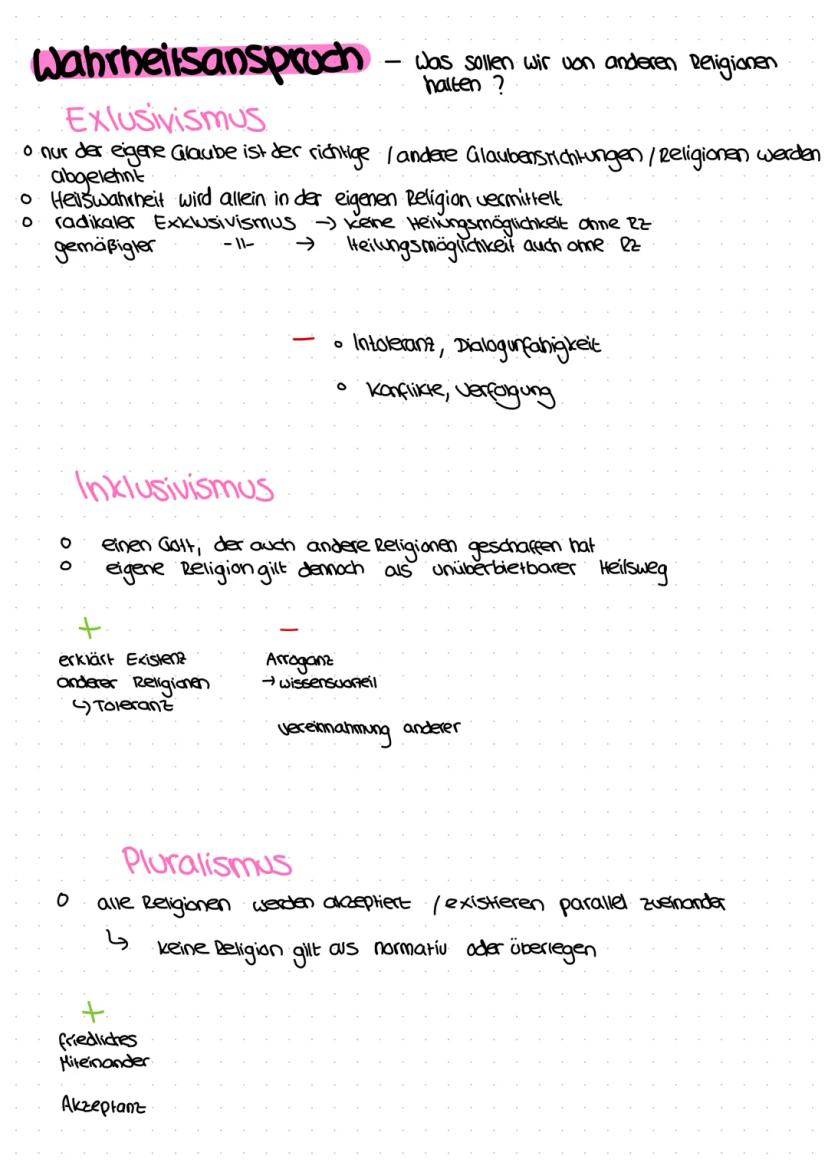 Wahrheitsanspruch – Was sollen wir von anderen Religionen
halten ?
Exlusivismus
o nur der eigene Glaube ist der richtige / andere Glaubensrichtungen / Religionen werden
abgelehnt
o Heilswahrheit wird allein in der eigenen Religion vermittelt
o radikaler Exklusivismus → keine Heilungsmöglichkeit ohne RZ
gemäßigler -11- → Heilungsmöglichkeit auch ohne RZ
– o Intoleranz, Dialogunfähigkeit
o Konflikte, Verfolgung
Inklusivismus
o einen Gott, der auch andere Religionen geschaffen hat
o eigene Religion gilt dennoch als unüberbietbarer Heilsweg
+ –
erklärt Existenz Arroganz
anderer Religionen → wissensvorteil
↳ Toleranz
Vereinnahmung anderer
Pluralismus
o alle Religionen werden akzeptiert / existieren parallel zueinander
↳ keine Religion gilt als normativ oder überlegen
+
friedliches
Miteinander
Akzeptanz